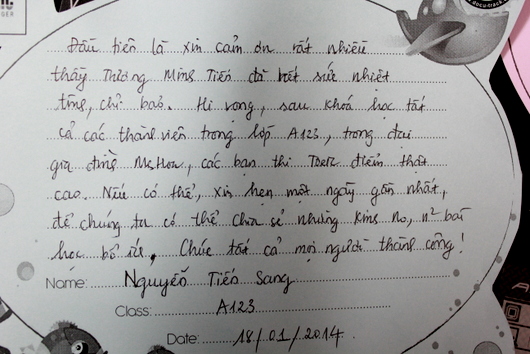 Đầu tiên là xin cảm ơn rất nhiều
thầy Thương Ming Tiến đã hết sức nhiệt
tìng, chỉ bảo. Hi vọng, sau khoá học tất
cả các thành viên trong lớp A123, trong đại
gia đìng Ms Hoa, các bạn thi Toeic điểm thật
cao. Nếu có thể, xin hẹn một ngày gần nhất,
để chúng ta có thể chia sẻ những king no, n² bài
học bổ ích, Chúc tất cả mọi người thành công!
Name: Nguyễn Tiến Sang
Class: A123
Date: 18/01/2014